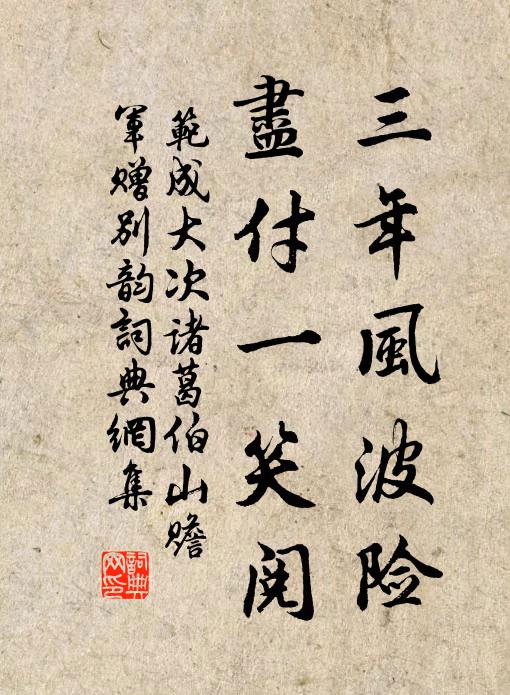 三年風波险
盡付一笑阅
範成大次諸葛伯山赡
軍赠別韵詞典網集
詞典网印